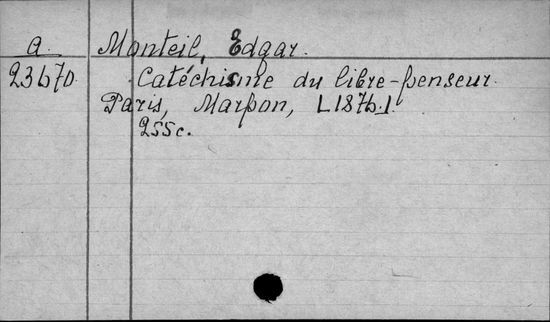 a Monteil, Edgar.
23670 Catéchisme du libre-penseur.
Paris, Marpon, [1876.]
255c.